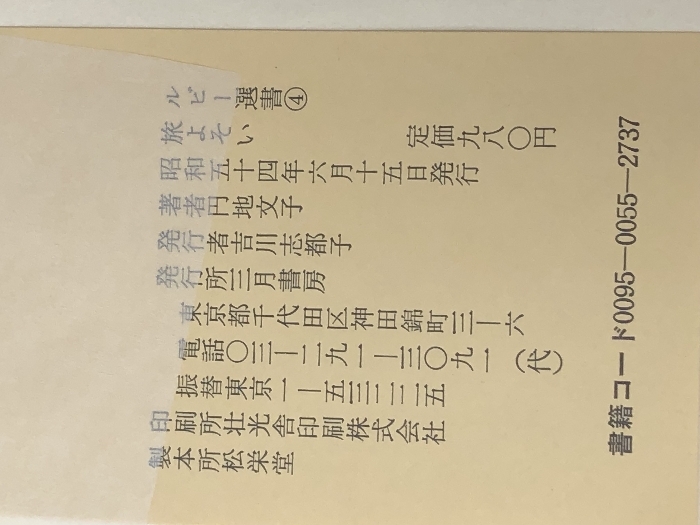 ルビー選書④
旅よそい 定価九八〇円
昭和五十四年六月十五日発行
著者円地文子
発行者吉川志都子
発行所三月書房
東京都千代田区神田錦町三―六
電話〇三―二九一―三〇九一(代)
振替東京
印刷所壮光舎印刷株式会社
製本所松栄堂
書籍コード0095―0055―2737